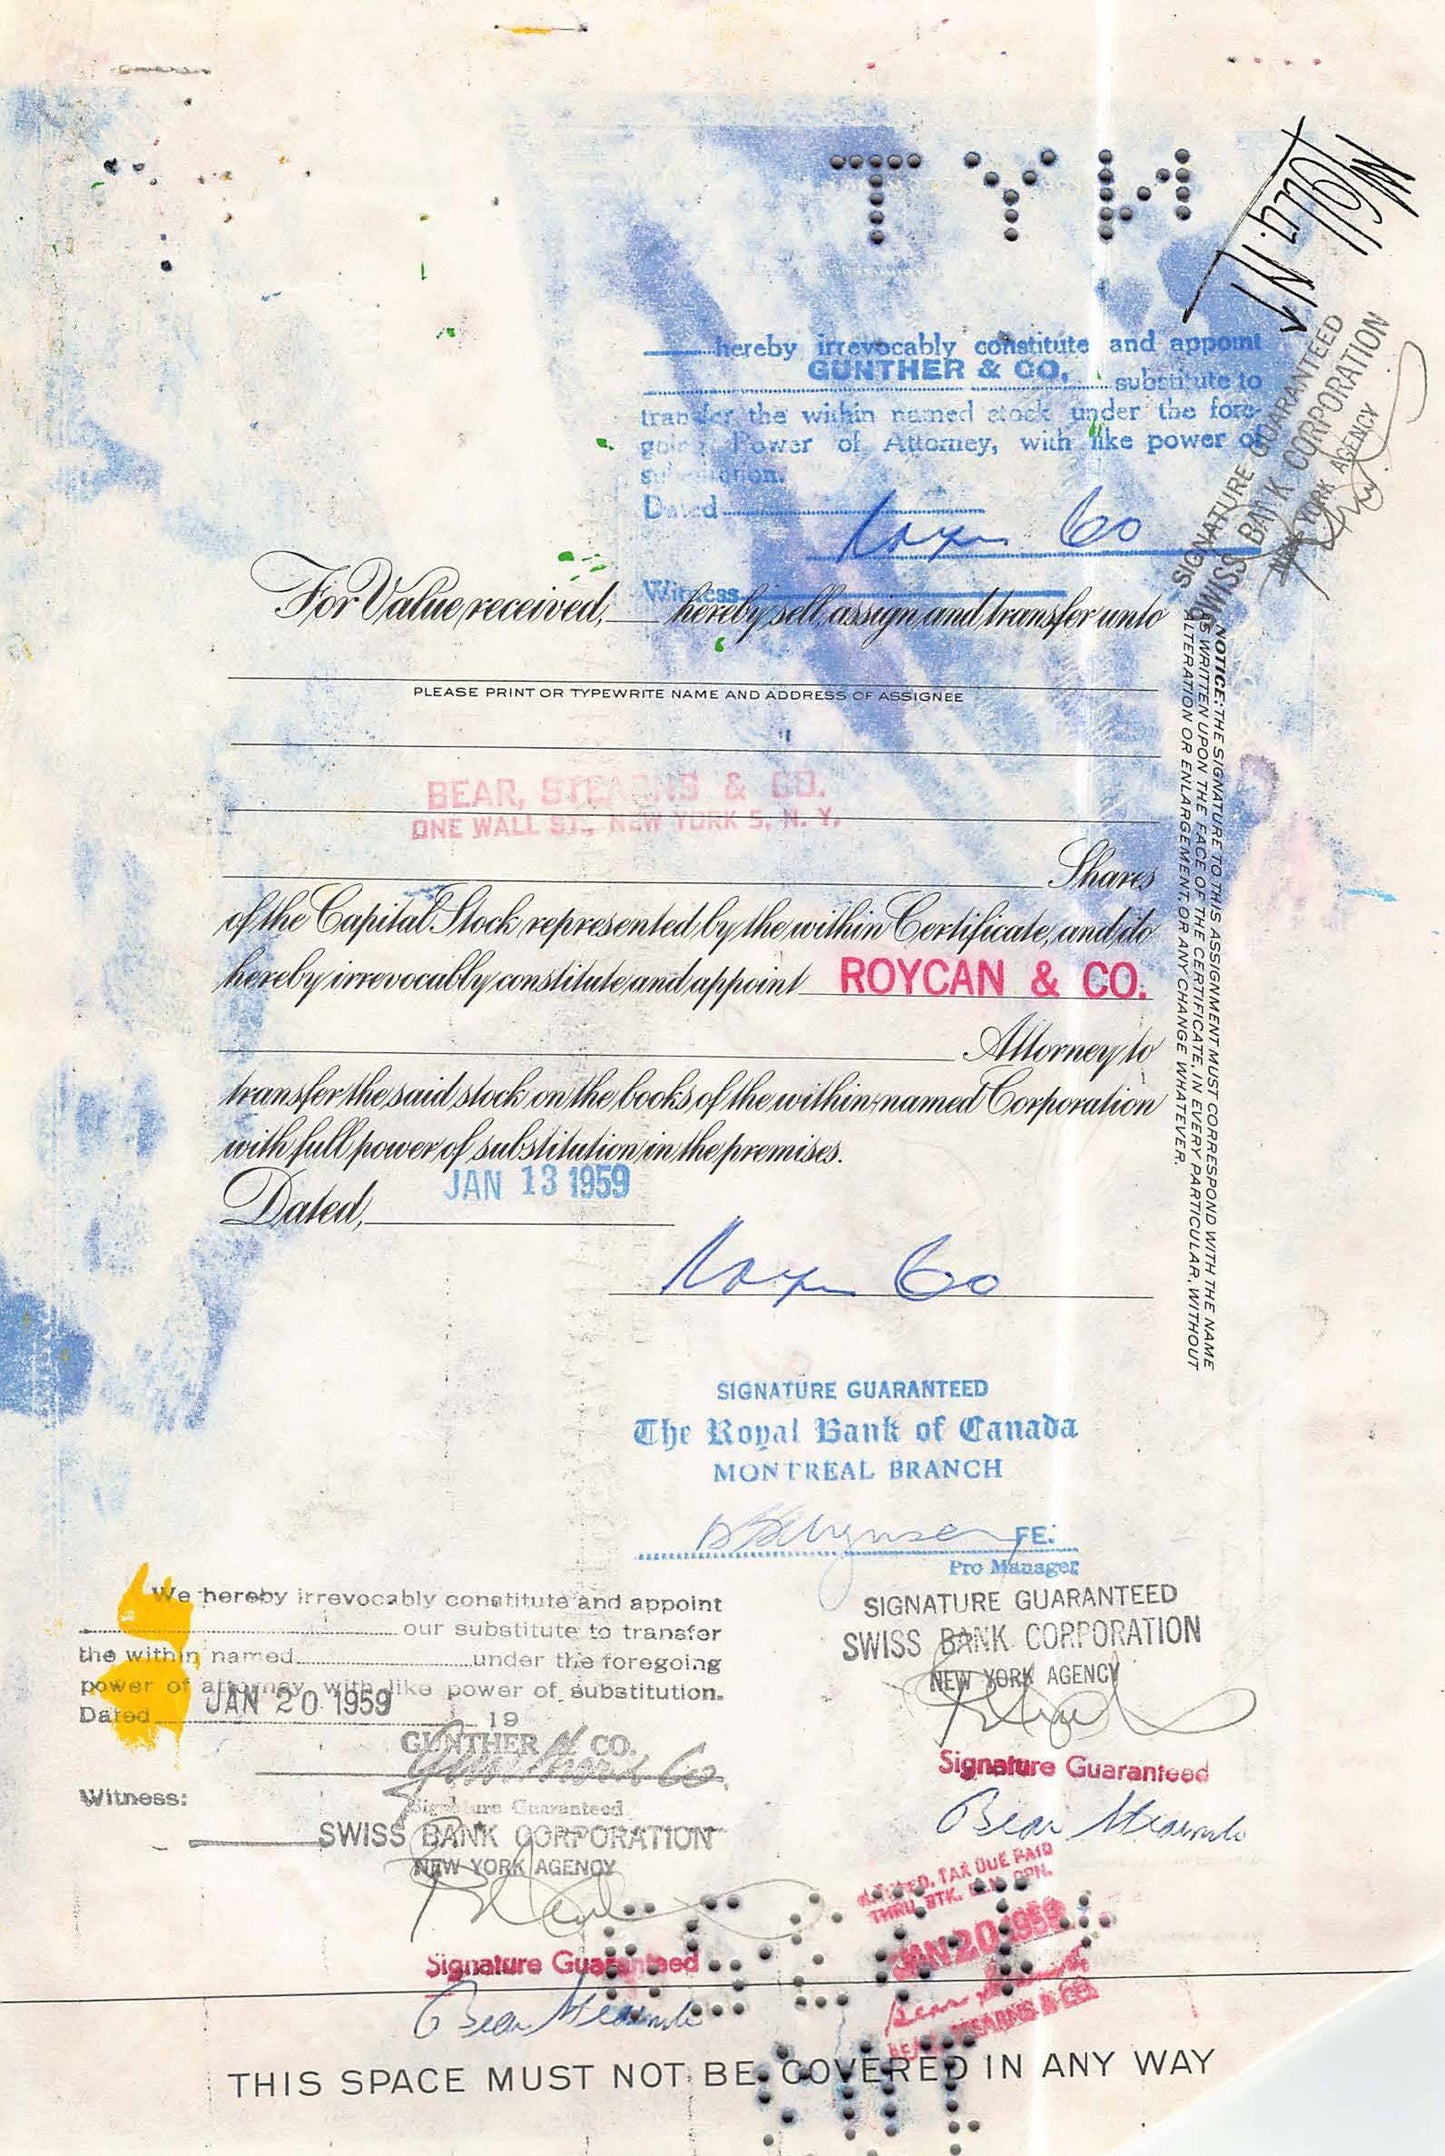 hereby irrevocably constitute and appoint
GUNTHER & CO. substitute to
transfer the within named stock under the fore-
going Power of Attorney, with like power of
substitution.
Dated
Witness
SIGNATURE GUARANTEED
SWISS BANK CORPORATION
NEW YORK AGENCY
For Value received, hereby sell, assign and transfer unto
PLEASE PRINT OR TYPEWRITE NAME AND ADDRESS OF ASSIGNEE
BEAR, STEARNS & CO.
ONE WALL ST., NEW YORK 5, N. Y.
Shares
of the Capital Stock represented by the within Certificate, and do
hereby irrevocably constitute and appoint ROYCAN & CO.
Attorney to
transfer the said stock on the books of the within-named Corporation
with full power of substitution in the premises.
Dated, JAN 13 1959
NOTICE: THE SIGNATURE TO THIS ASSIGNMENT MUST CORRESPOND WITH THE NAME
AS WRITTEN UPON THE FACE OF THE CERTIFICATE, IN EVERY PARTICULAR, WITHOUT
ALTERATION OR ENLARGEMENT, OR ANY CHANGE WHATEVER.
SIGNATURE GUARANTEED
The Royal Bank of Canada
MONTREAL BRANCH
FE.
Pro Manager
We hereby irrevocably constitute and appoint
our substitute to transfer
the within named under the foregoing
power of attorney, with like power of substitution.
Dated JAN 20 1959 19
GUNTHER & CO.
Gunther & Co.
Witness:
Signature Guaranteed
SWISS BANK CORPORATION
NEW YORK AGENCY
Signature Guaranteed
Bear Stearns & Co
SIGNATURE GUARANTEED
SWISS BANK CORPORATION
NEW YORK AGENCY
Signature Guaranteed
Bear Stearns & Co
TAX DUE PAID
THRU. STK.
JAN 20 1959
Bear Stearns
BEAR, STEARNS & CO.
THIS SPACE MUST NOT BE COVERED IN ANY WAY